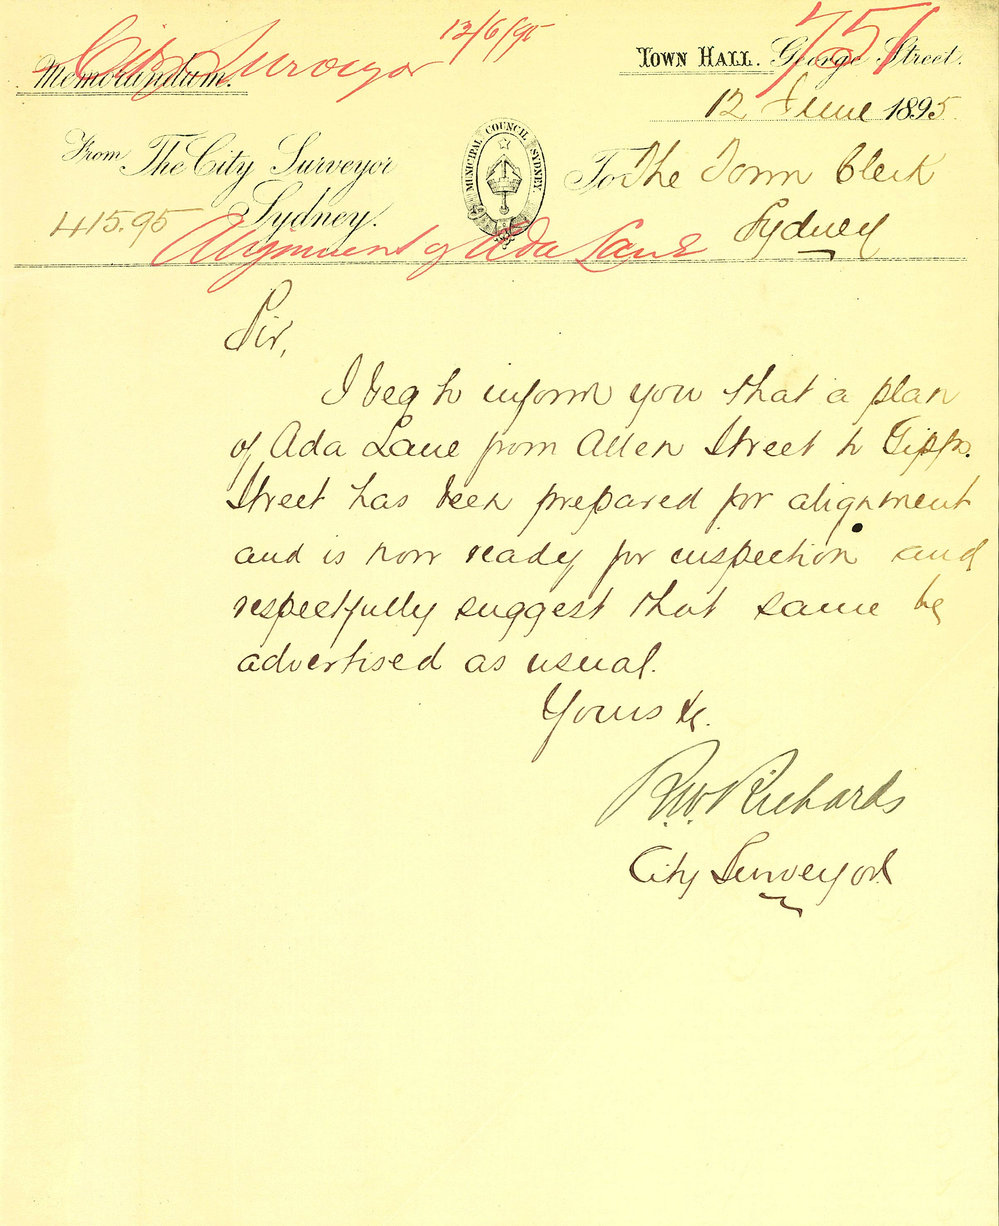 City Surveyor 13/6/95 751
Memorandum. TOWN HALL. George Street.
12 June 1895.
From The City Surveyor
Sydney.
MUNICIPAL COUNCIL SYDNEY.
To The Town Clerk
Sydney
415.95
Alignment of Ada Lane
Sir,
I beg to inform you that a plan
of Ada Lane from Allen Street to Gipps
Street has been prepared for alignment
and is now ready for inspection and
respectfully suggest that same be
advertised as usual.
Yours &c.
R.W. Richards
City Surveyor